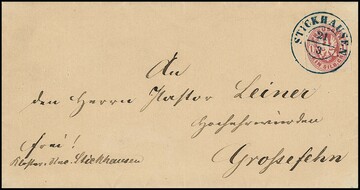 STICKHAUSEN
21
3
An
den Herrn Pastor Leiner
Hochehrwürden
frei!
Kloster- Stickhausen
Grossefehn